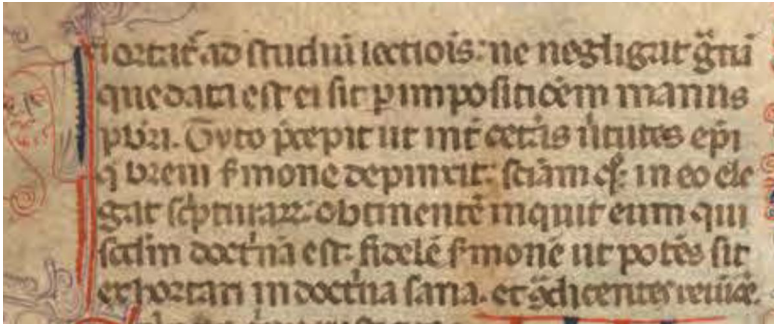 hortat᷑ ad studiũ lectiõis: ne negligat gr̃am
que data est ei sit ꝑ impositiõem manus
pbr̃i. Tyto p̃cepit ut int̃ cet̃as ũtutes ep̃i
q̃ breui ẜmone depinxit: sciãm qͥ in eo ele
gat sc̃pturaꝝ: obtinentẽ inquit eum qui
scd̃m doct'nã est: fidelẽ ẜmonẽ ut potẽs sit
exhortari in doct'na sana. et 9̃dicentes reuĩce